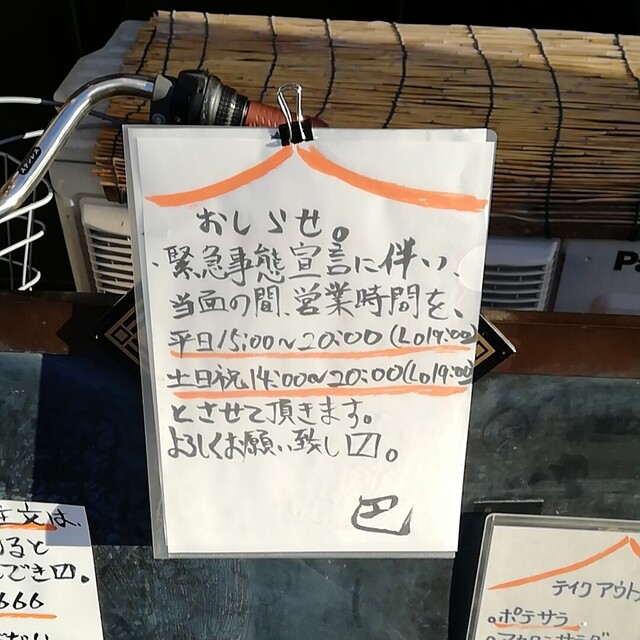 おしらせ。
緊急事態宣言に伴い、
当面の間、営業時間を、
平日15:00〜20:00(Lo19:00)
土日祝14:00〜20:00(Lo19:00)
とさせて頂きます。
よろしくお願い致し〼。
巴
注文は、
ると
でき〼。
666
テイクアウト
・ポテサラ